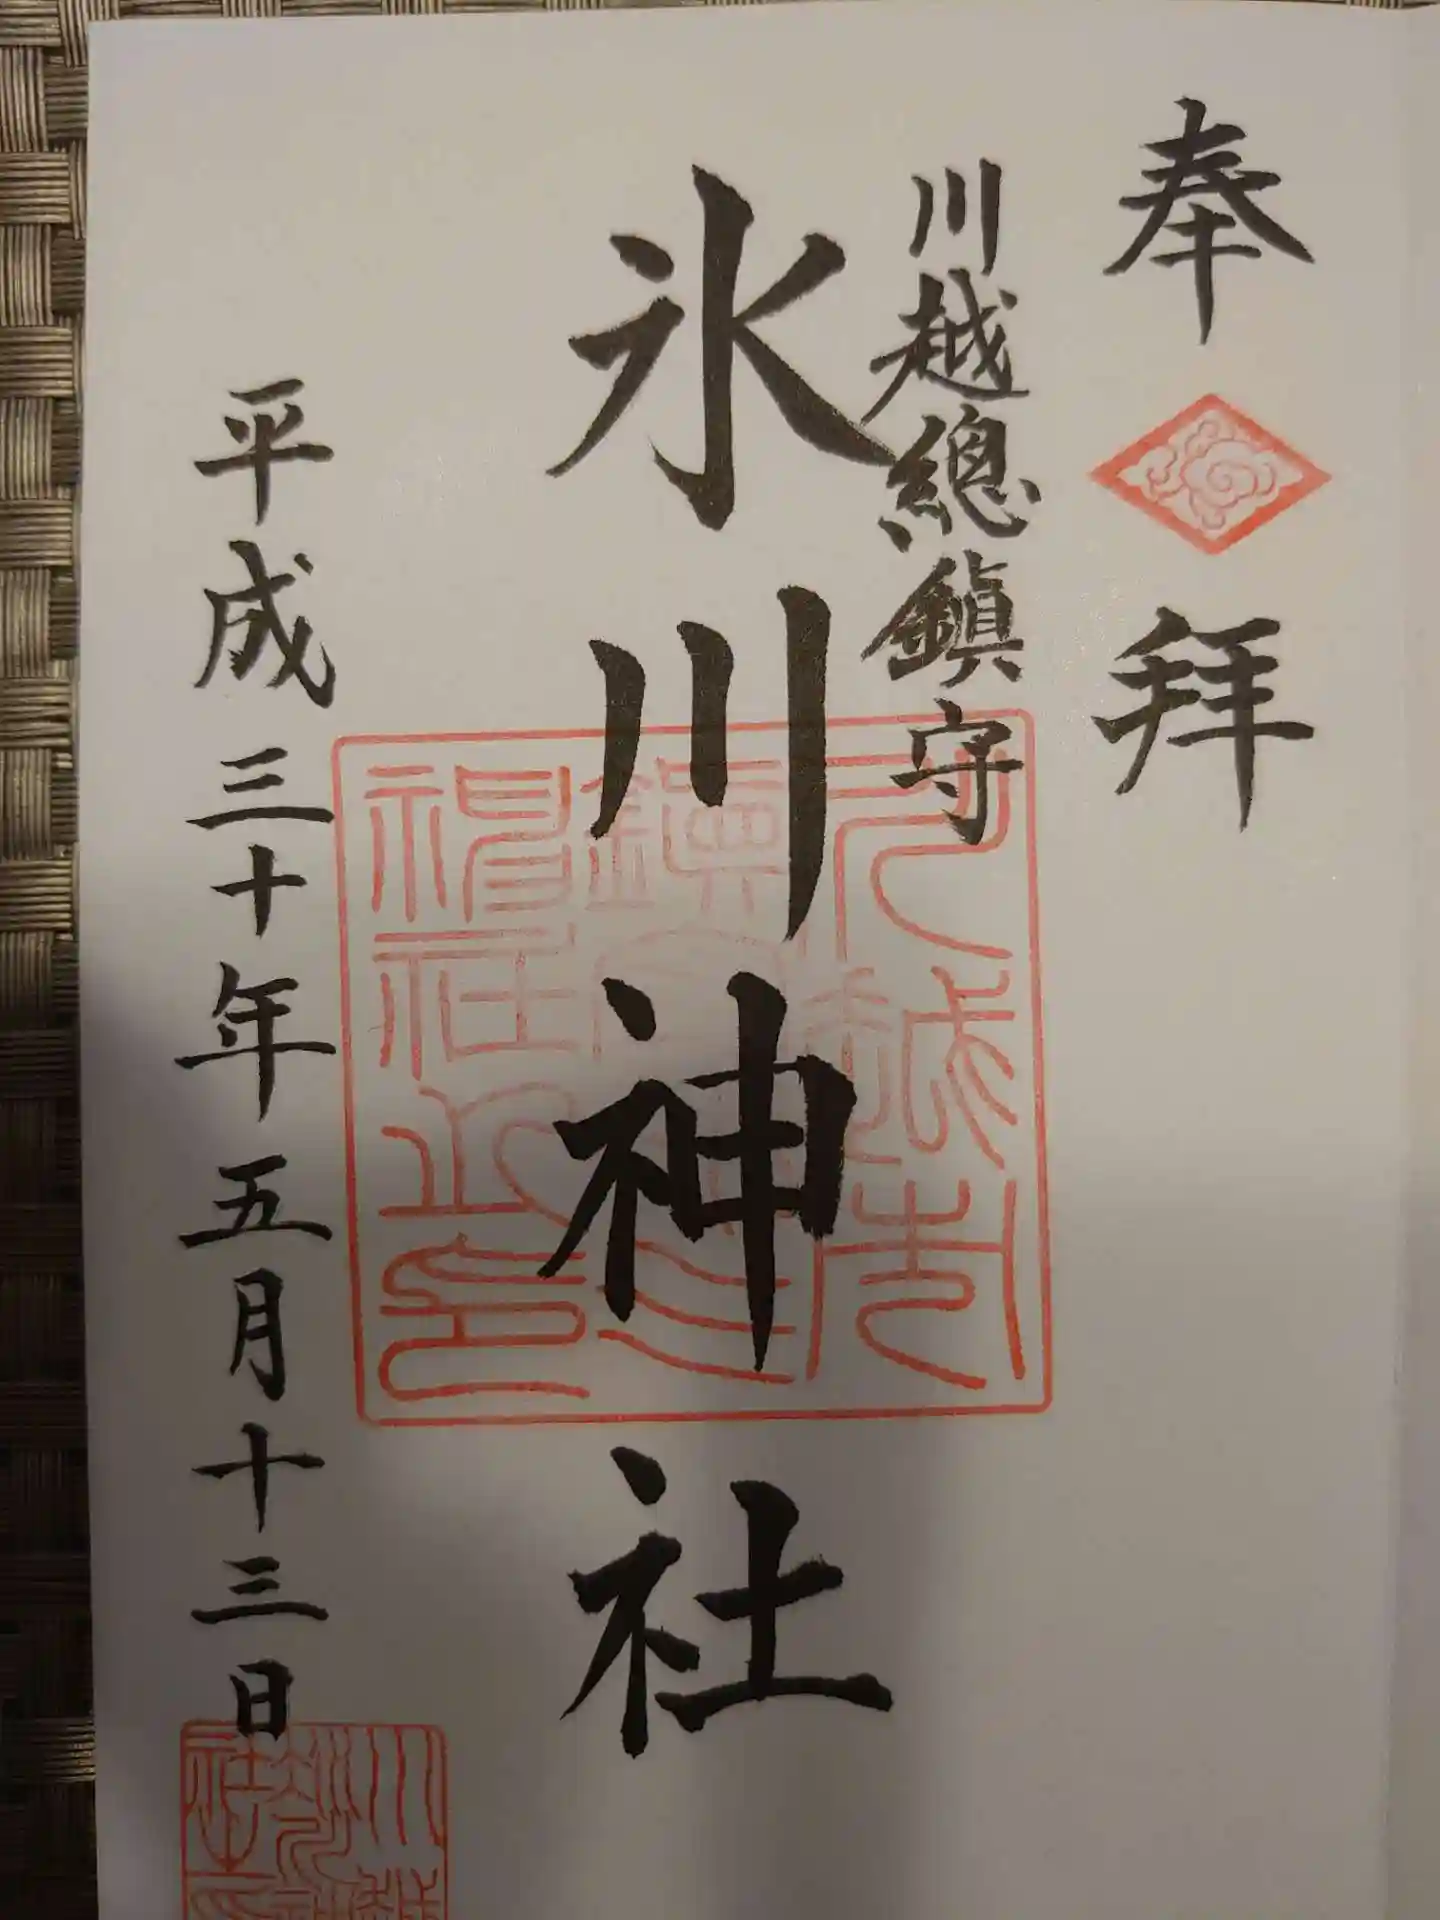 奉拜
川越總鎮守
氷川神社
平成三十年五月十三日